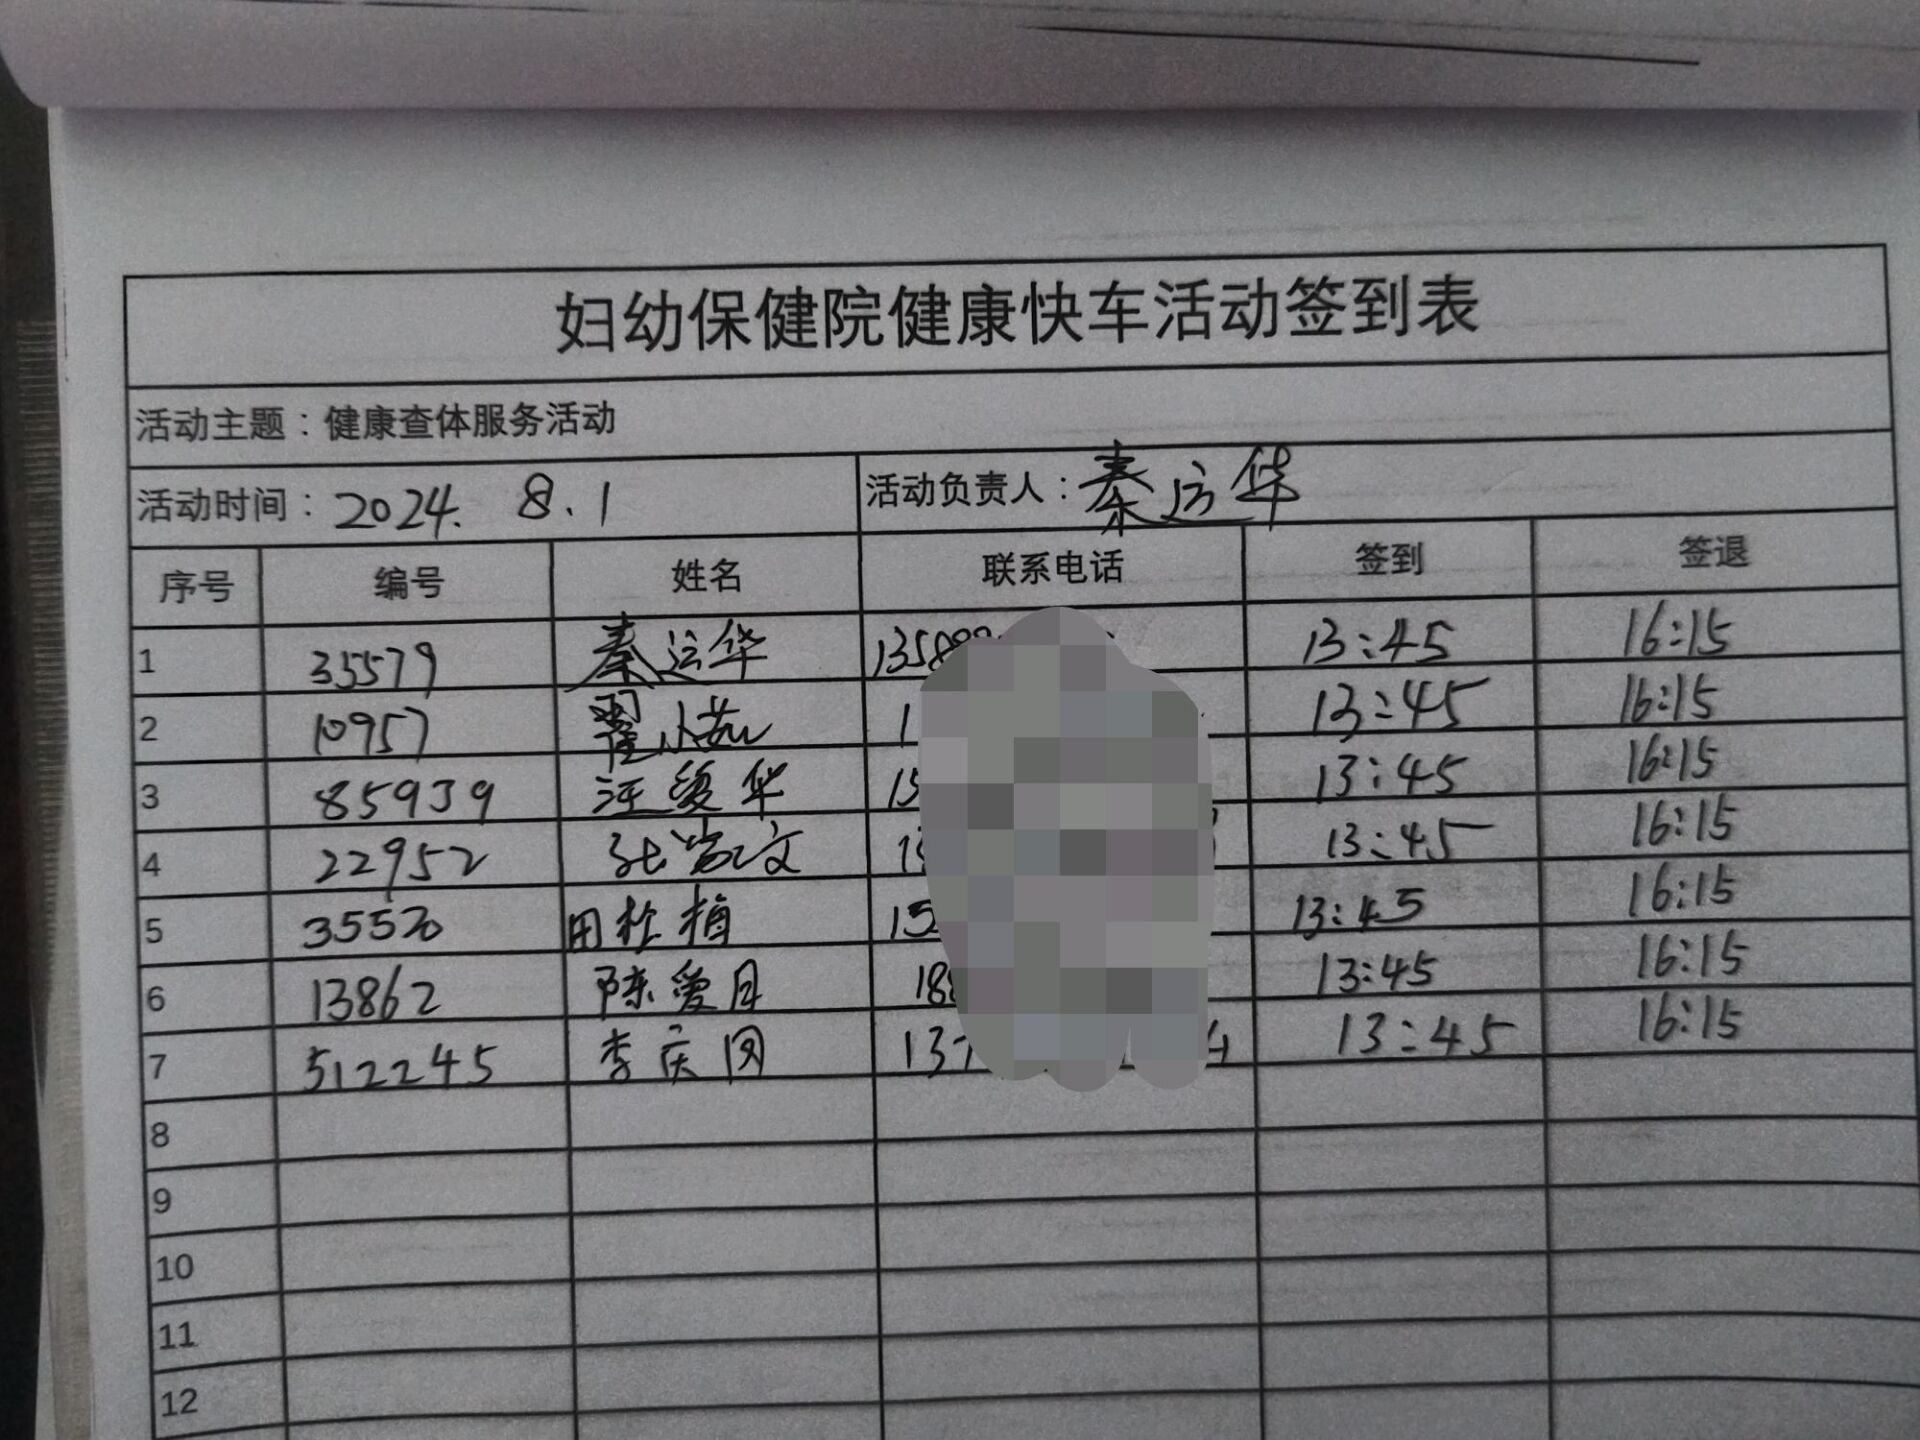 妇幼保健院健康快车活动签到表
活动主题：健康查体服务活动
活动时间：2024. 8.1 活动负责人：秦运华
序号 编号 姓名 联系电话 签到 签退
1 35579 秦运华 13:45 16:15
2 10957 翟小茹 13:45 16:15
3 85939 汪爱华 13:45 16:15
4 22952 张 文 13:45 16:15
5 35520 13:45 16:15
6 13862 陈爱月 13:45 16:15
7 512245 李庆 13:45 16:15
8
9
10
11
12